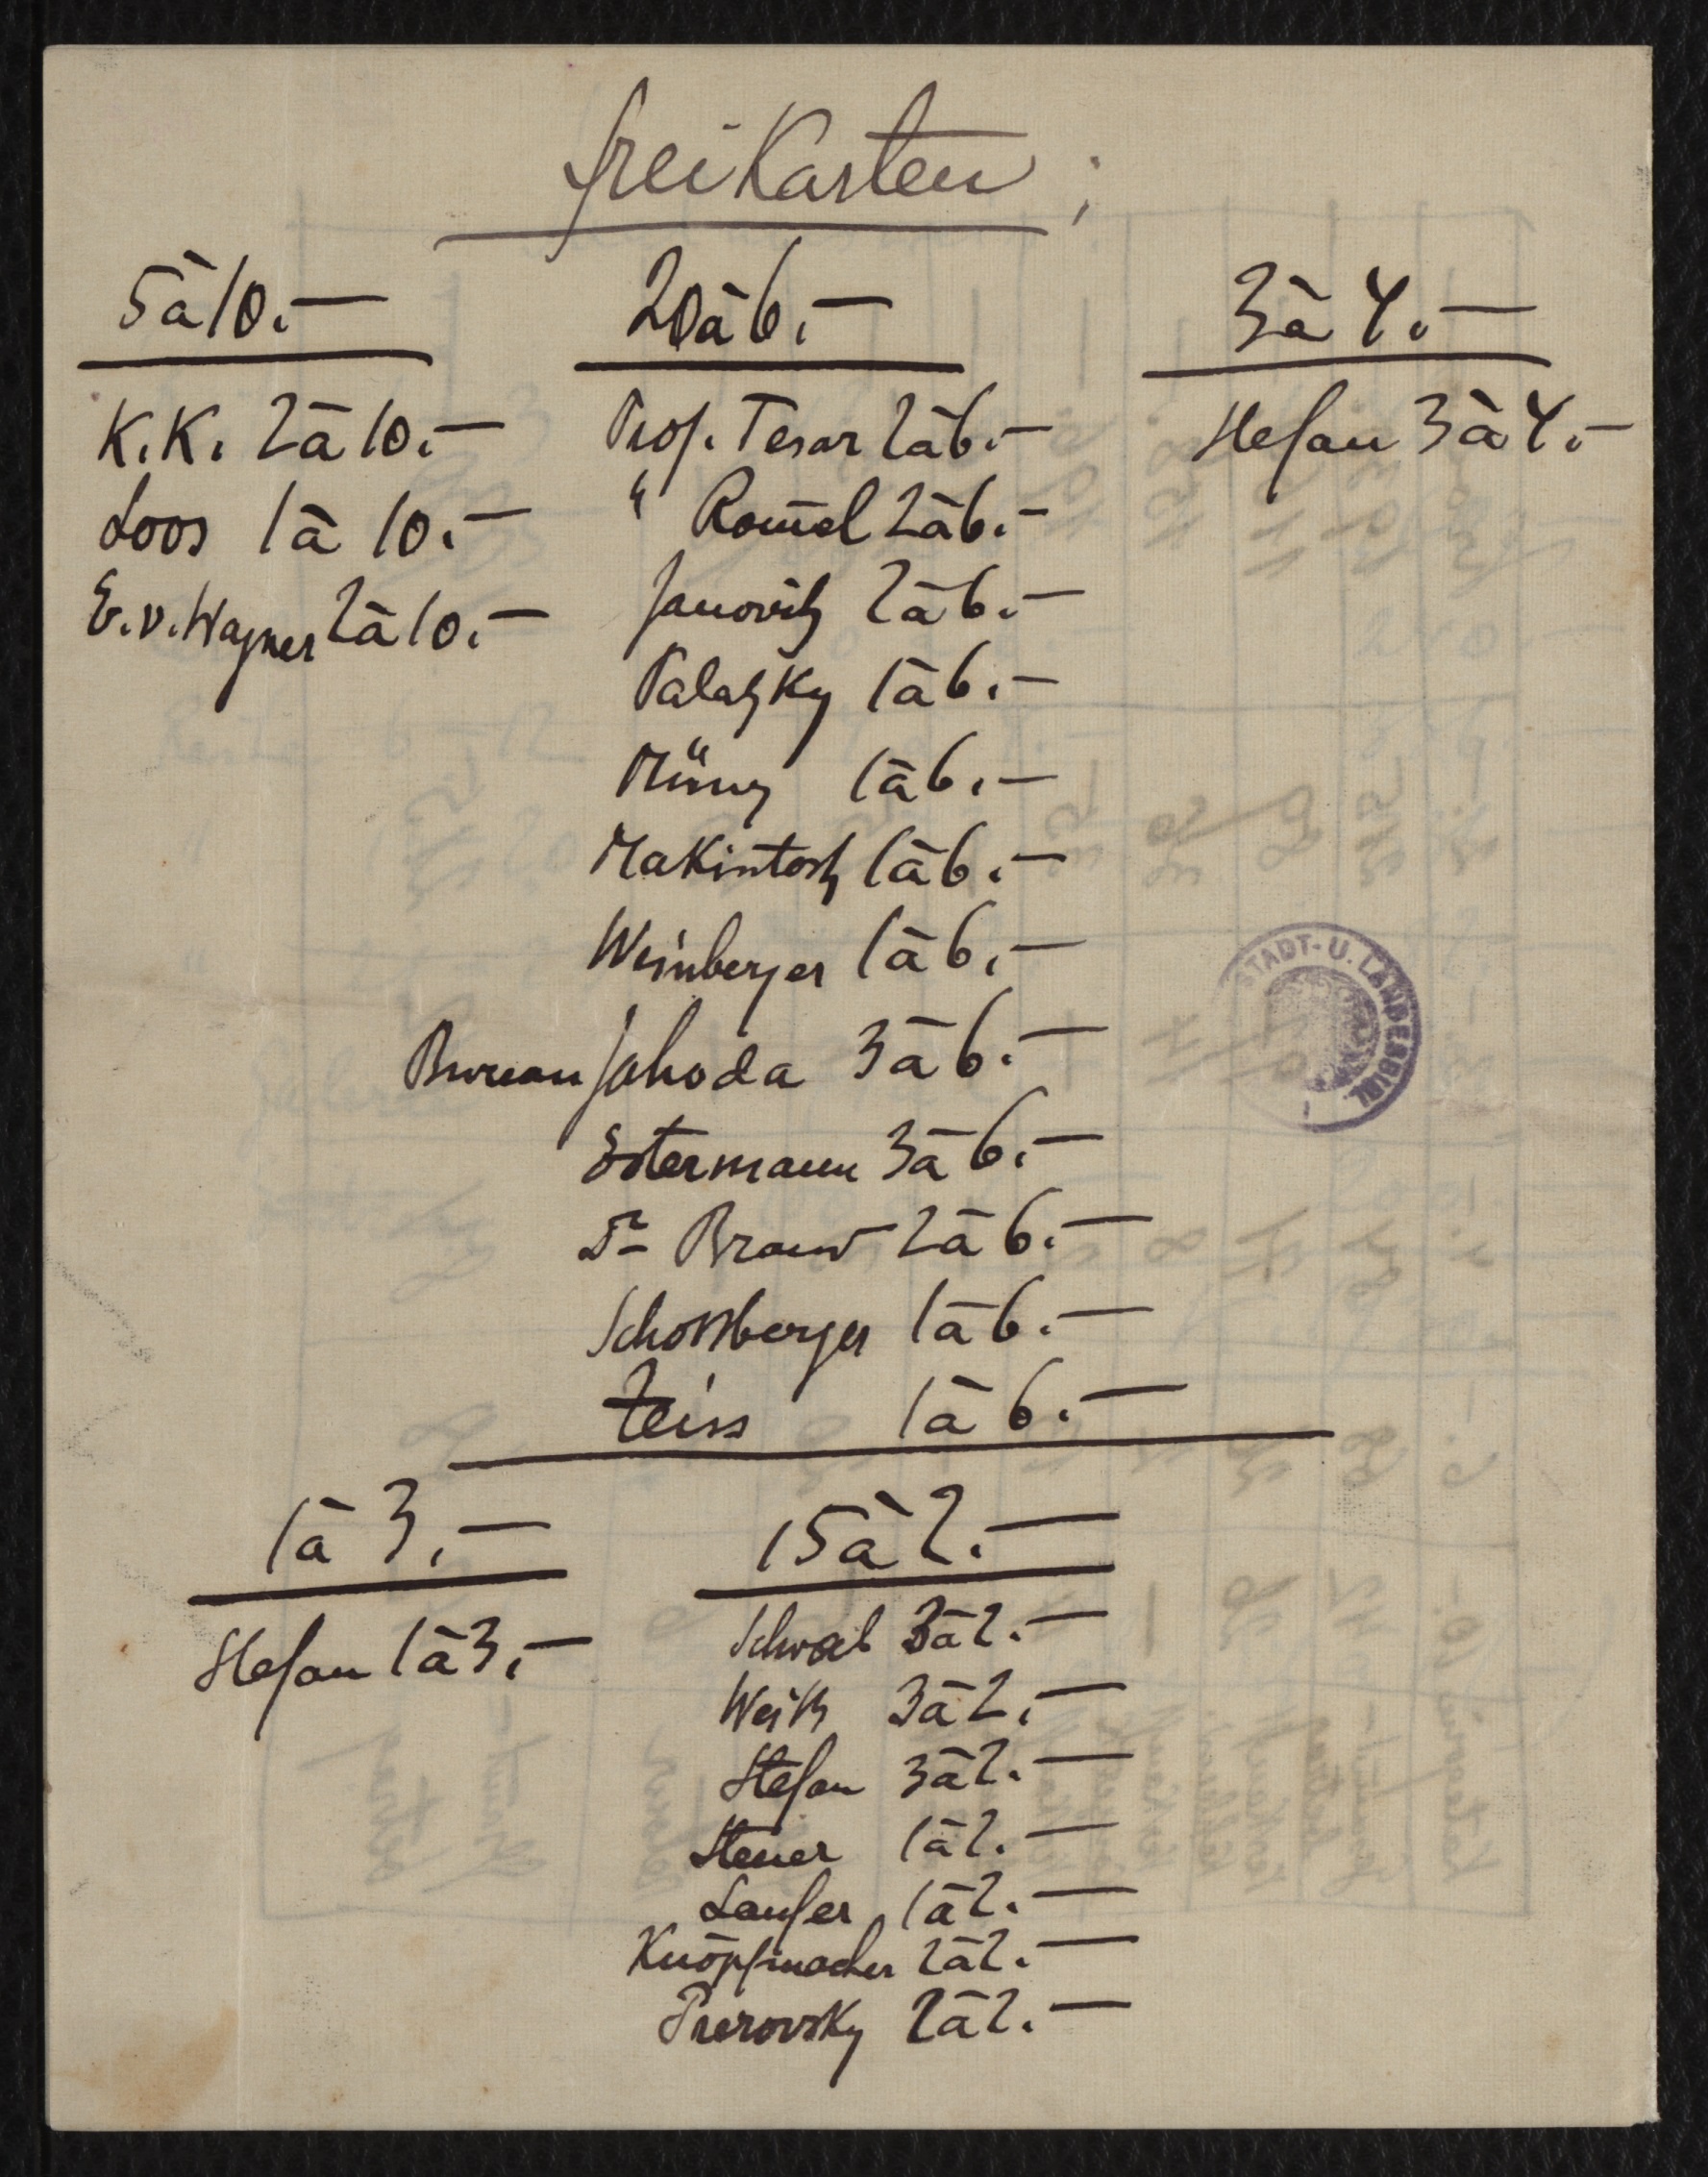 freikarten;
5 à 10.—
K.K. 2 à 10.—
Loos 1 à 10.—
E.v. Wagner 2 à 10.—
20 à 6.—
Prof. Tesar 2 à 6.—
" Rom̄el 2 à 6.—
Janovitz 2 à 6.—
Palatzky 1 à 6.—
Münz 1 à 6.—
Makintosh 1 à 6.—
Weinberger 1 à 6.—
Bureau Jahoda 3 à 6.—
Estermann 3 à 6.—
Dr Braun 2 à 6.—
Schossberger 1 à 6.—
Zeiss 1 à 6.—
3 à 4.—
Stefan 3 à 4.—
STADT- U. LANDESBIBL.
1 à 3.—
Stefan 1 à 3.—
15 à 2.—
Schwab 3 à 2.—
Weiß 3 à 2.—
Stefan 3 à 2.—
Steuer 1 à 2.—
Laufer 1 à 2.—
Knöpfmacher 2 à 2.—
Prerovsky 2 à 2.—